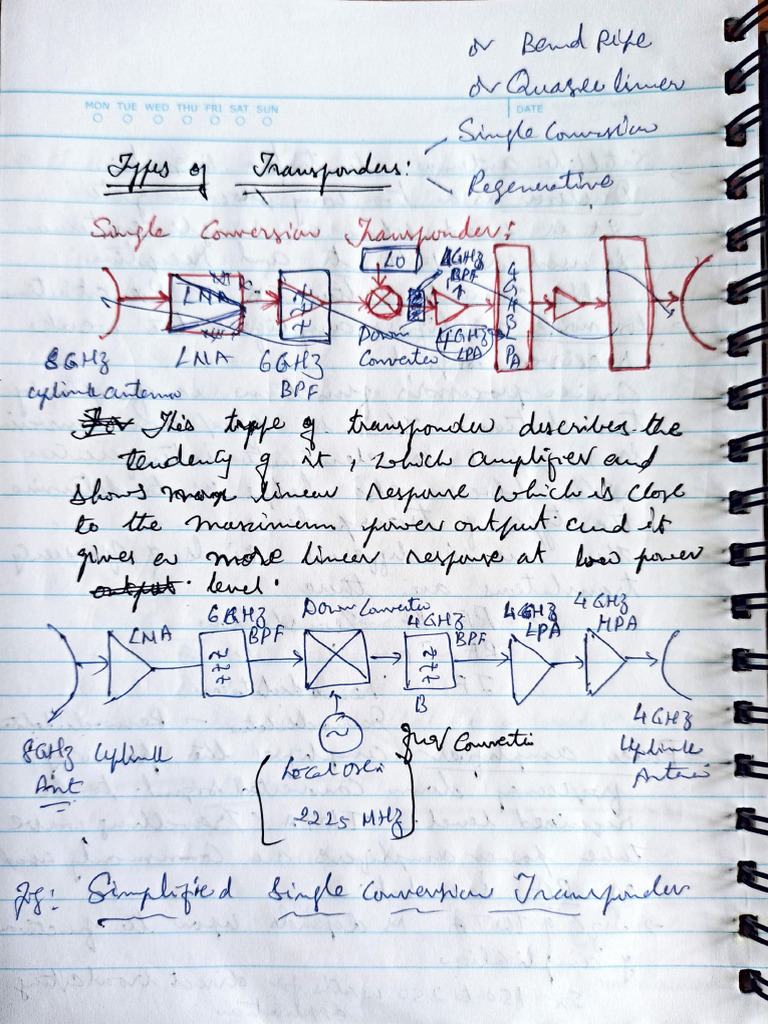 or Bend Pipe
or Quasee linner
MON TUE WED THU FRI SAT SUN
DATE
Single Conversion
Types of Transponders:
Regenerative
Single Conversion Transponder:
LO
4GHz
BPF
LNA
4GHz
LPA
Down
Converter
4GHz
LPA
8GHz
LNA
6GHz
BPF
cyplink antenna
This type of transponder describes the
tendency of it, which amplifier and
shows linear response which is close
to the maximum power output and it
gives a more linear response at low power
output level.
LNA
6GHz
BPF
Down Converter
4GHz
BPF
4GHz
LPA
4GHz
HPA
B
8GHz cyplink
Ant
Local Osci
2225 MHz
for Convertin
4GHz
Uplink
Anteni
Fig: Simplified Single Conversion Transponder